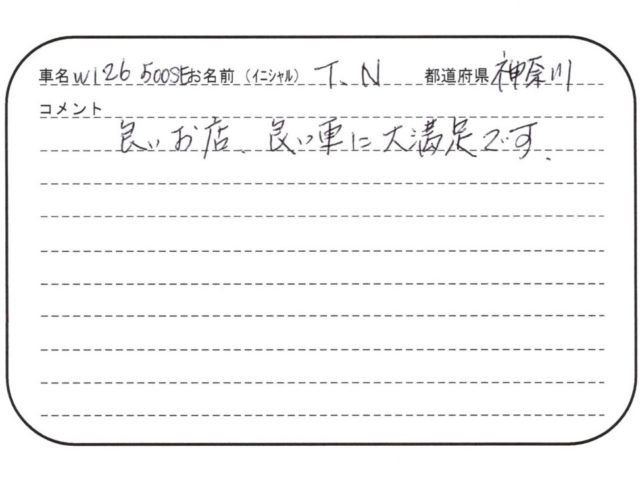 車名 W126 500SE お名前（イニシャル） T、N 都道府県 神奈川
コメント
良いお店、良い車に大満足です、